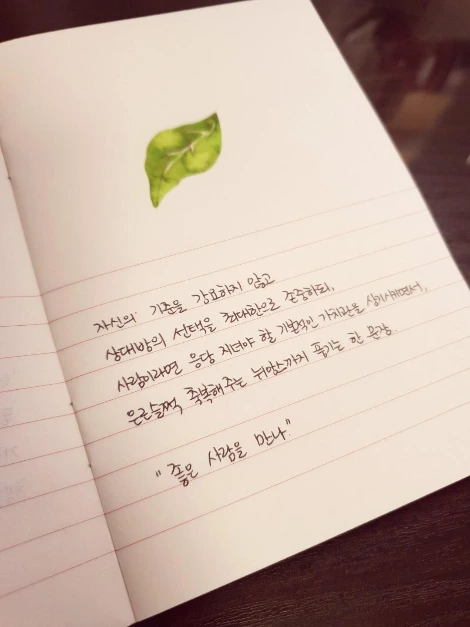 자신의 기준을 강요하지 않고
상대방의 선택을 최대한으로 존중하되,
사람이라면 응당 지녀야 할 기본적인 가치관을 상기시키면서,
은근슬쩍 축복해주는 뉘앙스까지 풍기는 한 문장.
"좋은 사람을 만나."